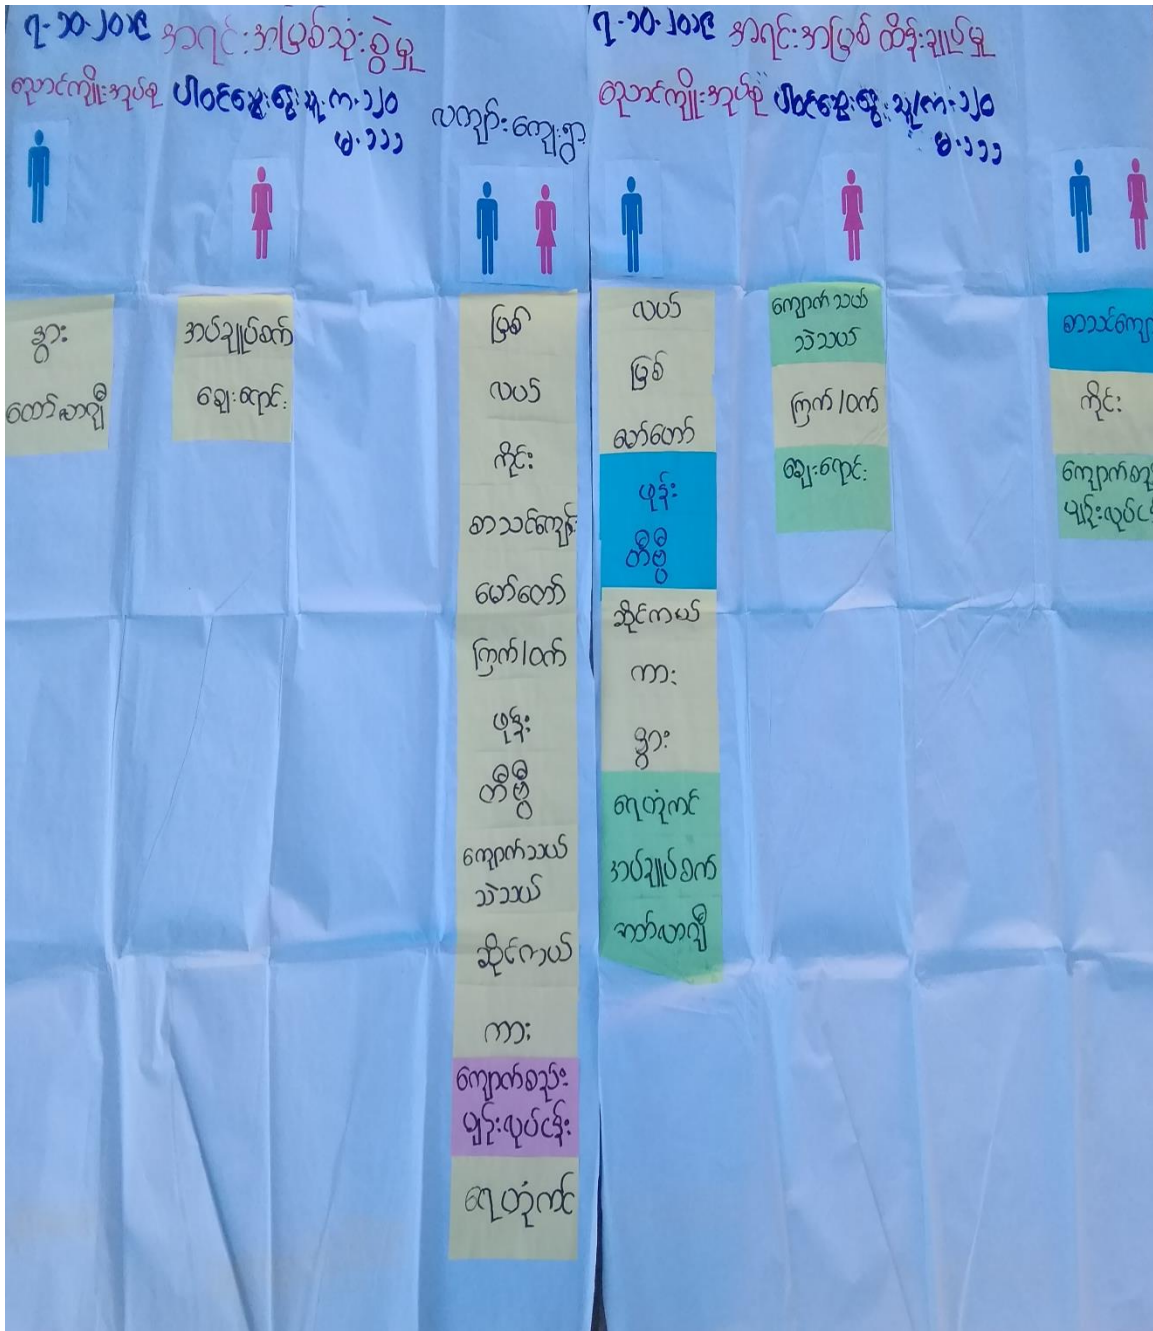 ၇-၁၀-၂၀၁၉ အရင်းအမြစ်သုံးစွဲမှု
ညောင်ကျိုးအုပ်စု ပါဝင်ဆွေးနွေးသူ.က.၁၂၀
မ.၁၁၁
လကျ်ားကျေးရွာ
နွား
ထော်လာဂျီ
အပ်ချုပ်စက်
ချေးငွေ
မြစ်
လယ်
ကိုင်း
စာသင်ကျောင်း
မော်တော်
ကြက်/ဝက်
ဖုန်း
တီဗွီ
ကျောက်သယ်
သဲသယ်
ဆိုင်ကယ်
ကား
ကျောက်စည်း
ပျဉ်းလုပ်ငန်း
ရေတုံကင်
၇-၁၀-၂၀၁၉ အရင်းအမြစ် ထိန်းချုပ်မှု
ညောင်ကျိုးအုပ်စု ပါဝင်ဆွေးနွေးသူ/က.၁၂၀
မ.၁၁၁
လယ်
မြစ်
မော်တော်
ဖုန်း
တီဗွီ
ဆိုင်ကယ်
ကား
နွား
ရေတုံကင်
အပ်ချုပ်စက်
ထော်လာဂျီ
ကျောက်သယ်
သဲသယ်
ကြက်/ဝက်
ကိုင်း